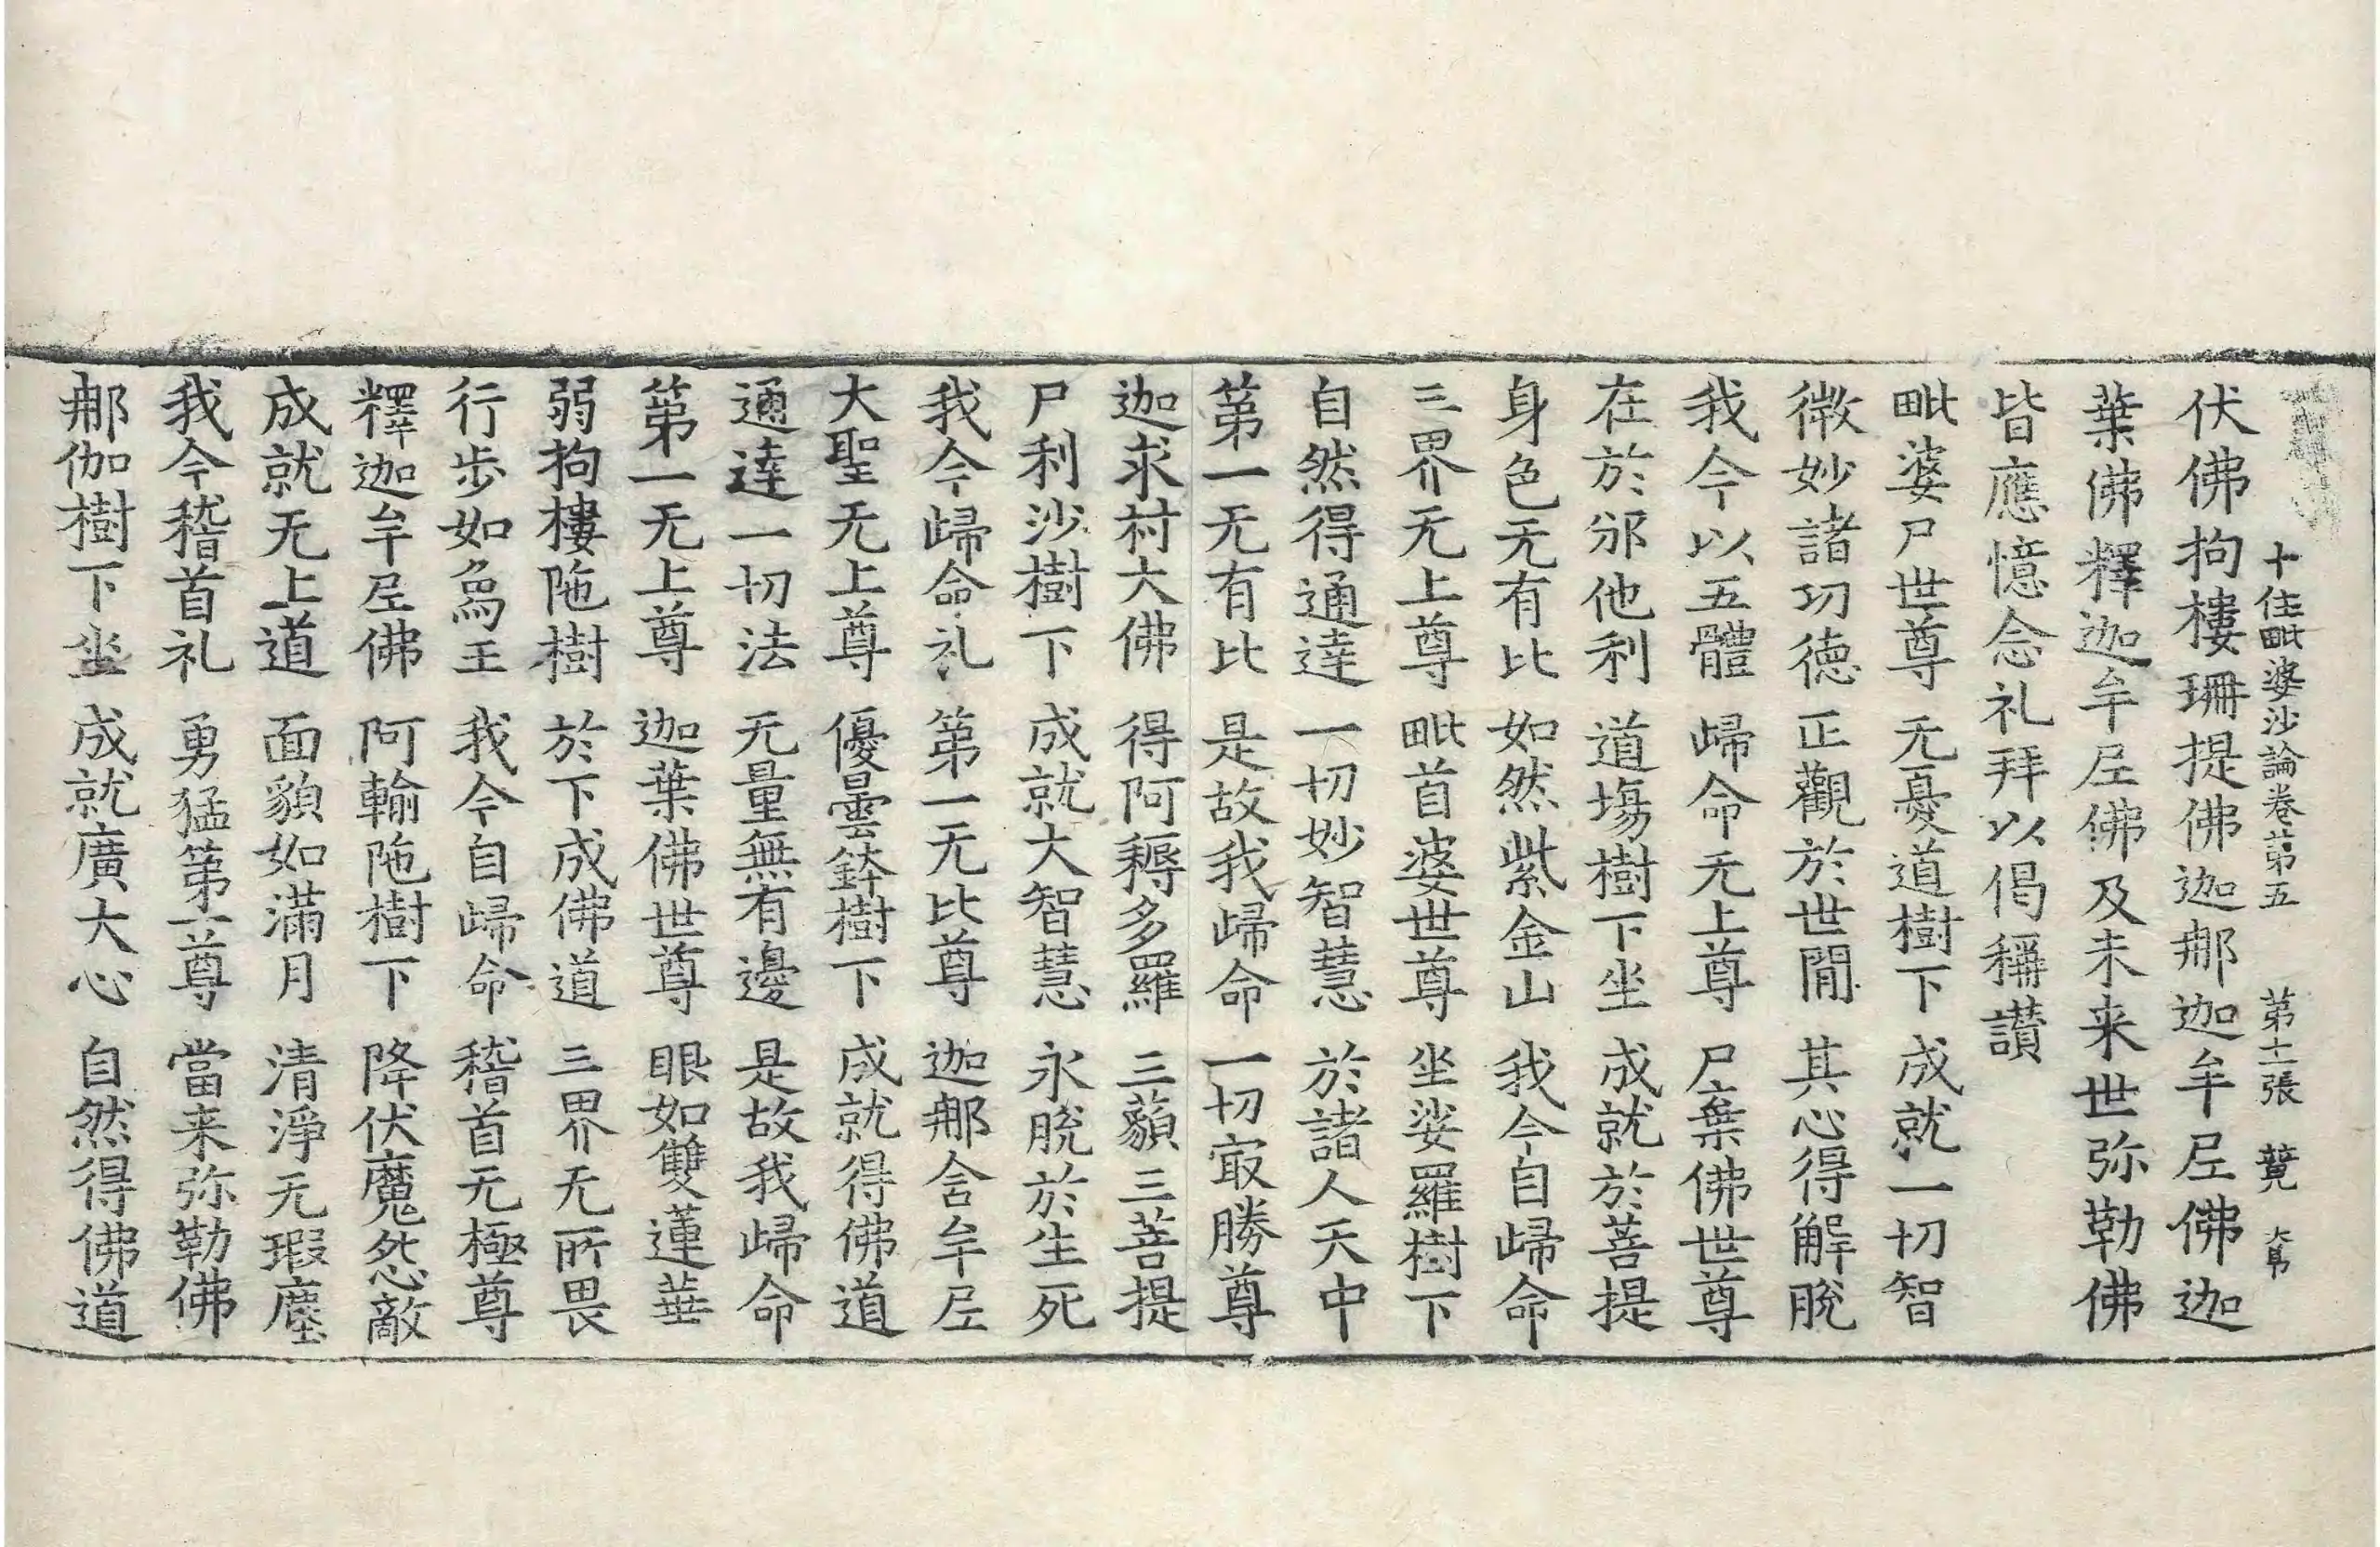 十住毗婆沙論卷苐五 苐十二張 竟
伏佛拘樓珊提佛迦郍迦牟尼佛迦
葉佛釋迦牟尼佛及未来世弥勒佛
皆應憶念礼拜以偈稱讃
毗婆尸世尊 无憂道樹下 成就一切智
微妙諸功德 正觀於世閒 其心得解脫
我今以五體 歸命无上尊 尸棄佛世尊
在於邠他利 道塲樹下坐 成就於菩提
身色无有比 如然紫金山 我今自歸命
三界无上尊 毗首婆世尊 坐娑羅樹下
自然得通達 一切妙智慧 於諸人天中
苐一无有比 是故我歸命 一切㝡勝尊
迦求村大佛 得阿耨多羅 三藐三菩提
尸利沙樹下 成就大智慧 永脫於生死
我今歸命礼 苐一无比尊 迦郍含牟尼
大聖无上尊 優曇鉢樹下 成就得佛道
通達一切法 无量無有邊 是故我歸命
苐一无上尊 迦葉佛世尊 眼如雙蓮華
弱拘樓陁樹 於下成佛道 三界无所畏
行步如烏王 我今自歸命 稽首无極尊
釋迦牟尼佛 阿輸陁樹下 降伏魔怨敵
成就无上道 面貌如滿月 清淨无瑕塵
我今稽首礼 勇猛苐一尊 當来弥勒佛
郍伽樹下坐 成就廣大心 自然得佛道